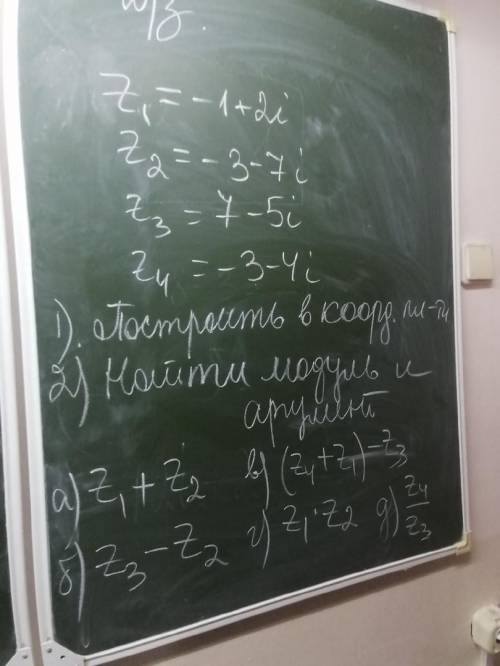 д/з.
Z₁ = -1+2i
Z₂ = -3-7i
Z₃ = 7-5i
Z₄ = -3-4i
1). Построить в коорд. пл-ти
2) Найти модуль и
аргумент
а) Z₁ + Z₂
в) (Z₄+Z₁)-Z₃
б) Z₃ - Z₂
г) Z₁·Z₂
д) Z₄/Z₃